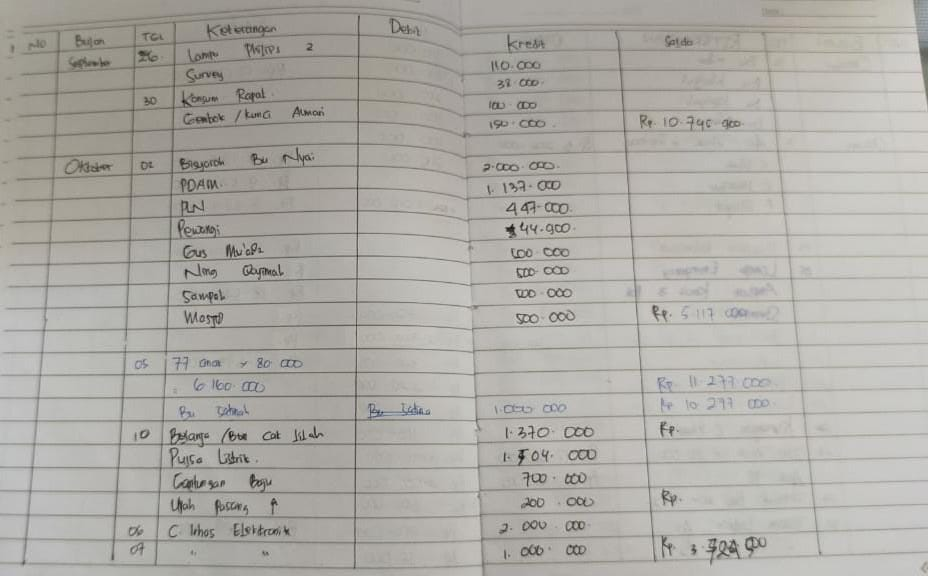 NO Bulan TGL Keterangan Debit Kredit Saldo
September 26 Lampu Philips 2 110.000
Survey 38.000
30 Konsum Rapat 100.000
Gembok / Kunci Almari 150.000 Rp. 10.746.900
Oktober 02 Bisyaroh Bu Nyai 2.000.000
PDAM 1.137.000
PLN 447.000
Pewangi 44.900
Gus 500.000
Ning 500.000
Sampah 500.000
Masjid 500.000 Rp. 5.117.000
05 77 anak × 80.000
= 6.160.000 Rp 11.277.000
Bu 1.000.000 Rp 10.277.000
10 Belanja / Cat 1.370.000 Rp.
Pulsa Listrik. 1.504.000
Gantungan Baju 700.000
Upah Pasang ↑ 200.000 Rp.
06 C. Elektronik 2.000.000
07 " " 1.000.000 Rp 3.